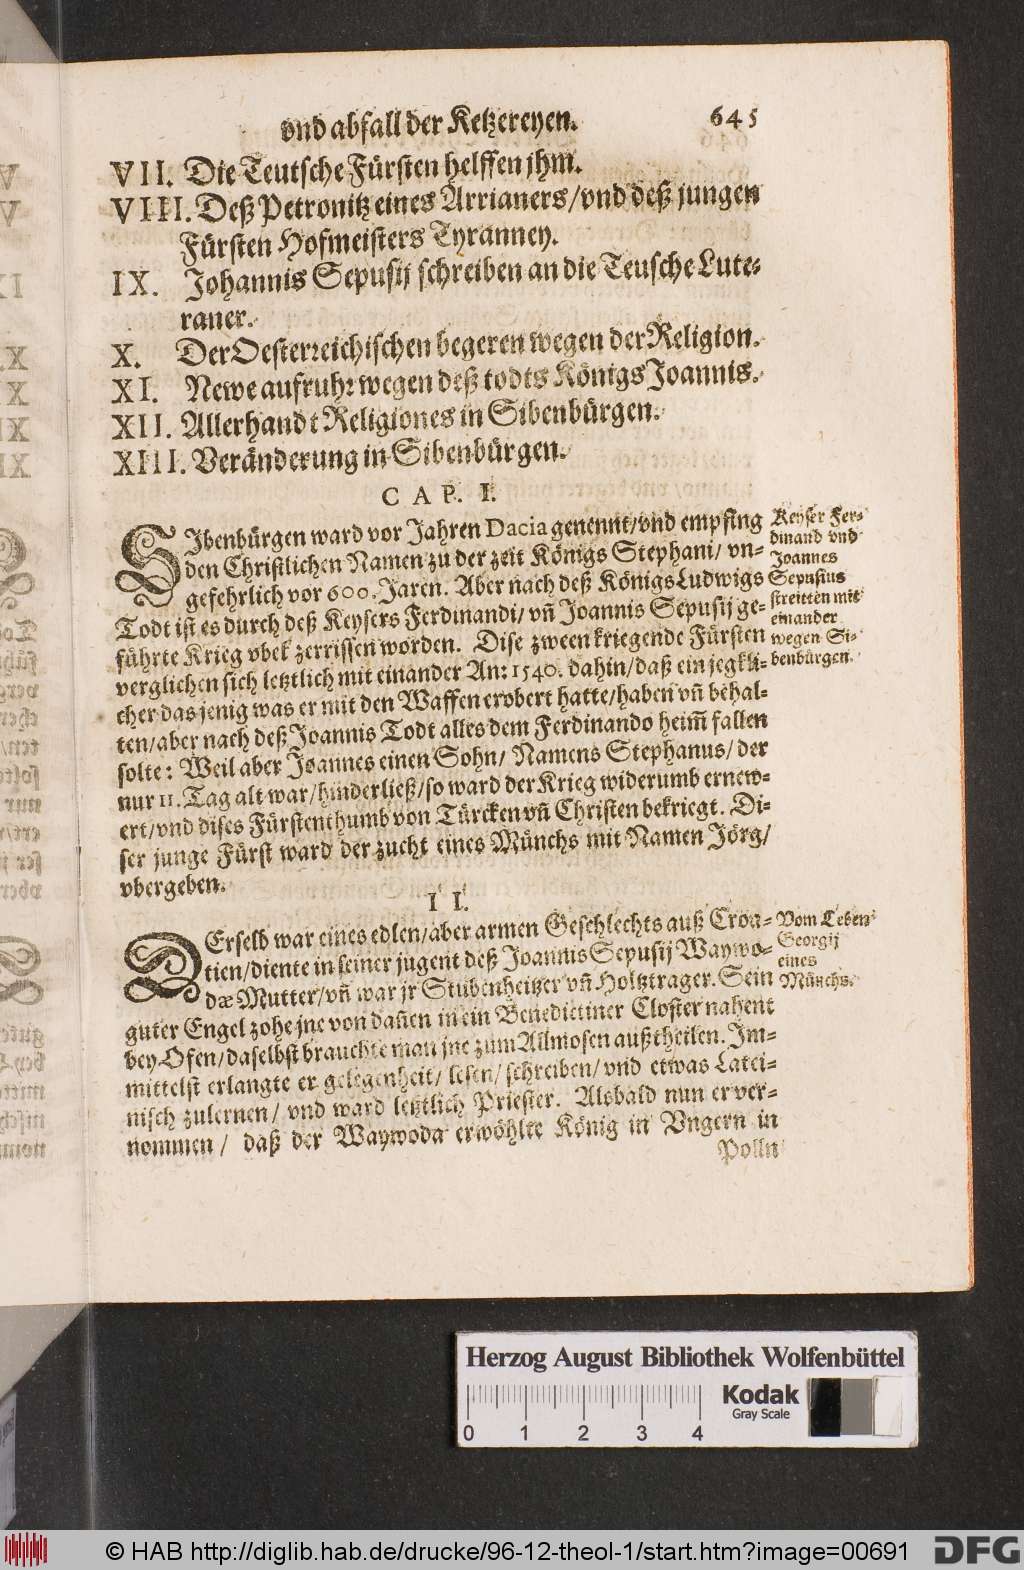 vnd abfall der Ketzereyen. 645
VII. Die Teutsche Fürsten helffen jhm.
VIII. Deß Petronitz eines Arrianers/vnd deß jungen
Fürsten Hofmeisters Tyranney.
IX. Johannis Sepusij schreiben an die Teusche Lute-
raner.
X. Der Oesterreichischen begeren wegen der Religion.
XI. Newe aufruhr wegen deß todts Königs Joannis.
XII. Allerhandt Religiones in Sibenbürgen.
XIII. Veränderung in Sibenbürgen.
CAP. I.
SIbenbürgen ward vor Jahren Dacia genennt/vnd empfing
den Christlichen Namen zu der zeit Königs Stephani/ vn-
gefehrlich vor 600. Jaren. Aber nach deß Königs Ludwigs
Todt ist es durch deß Keysers Ferdinandi/ vñ Joannis Sepusij ge-
führte Krieg vbel zerrissen worden. Dise zween kriegende Fürsten
verglichen sich letztlich mit einander An: 1540. dahin/daß ein jegkli-
cher das jenig was er mit den Waffen erobert hatte/haben vñ behal-
ten/aber nach deß Joannis Todt alles dem Ferdinando heim̃ fallen
solte: Weil aber Joannes einen Sohn/ Namens Stephanus/ der
nur 11. Tag alt war/hinderließ/so ward der Krieg widerumb ernew-
ert/vnd dises Fürstenthumb von Türcken vñ Christen bekriegt. Di-
ser junge Fürst ward der zucht eines Münchs mit Namen Jörg/
vbergeben.
Keyser Fer-
dinand vnd
Joannes
Sepusius
streitten mit
einander
wegen Si-
benbürgen.
II.
DErselb war eines edlen/aber armen Geschlechts auß Croa-
tien/diente in seiner jugent deß Joannis Sepusij Waywo-
dæ Mutter/vñ war jr Stubenheitzer vñ Holtztrager. Sein
guter Engel zohe jne von dañen in ein Benedictiner Closter nahent
bey Ofen/daselbst brauchte man jne zum Allmosen außtheilen. Im-
mittelst erlangte er gelegenheit/ lesen/ schreiben/ vnd etwas Latei-
nisch zulernen/ vnd ward letztlich Priester. Alsbald nun er ver-
nommen/ daß der Waywoda erwöhlte König in Vngern in
Polln
Vom Leben
Georgij
eines
Münchs.
Herzog August Bibliothek Wolfenbüttel
Kodak
Gray Scale
0 1 2 3 4
© HAB http://diglib.hab.de/drucke/96-12-theol-1/start.htm?image=00691
DFG